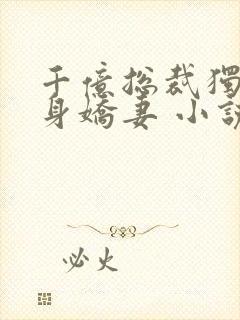 千億總裁獨
身嬌妻 小說
必火